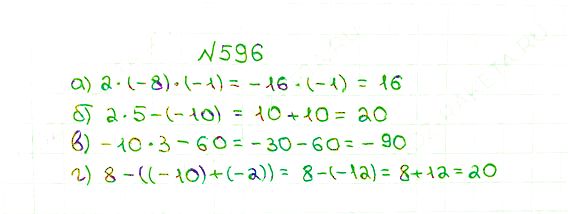 №596
а) 2·(-8)·(-1) = -16·(-1) = 16
б) 2·5-(-10) = 10+10 = 20
в) -10·3-60 = -30-60 = -90
г) 8-((-10)+(-2)) = 8-(-12) = 8+12 = 20